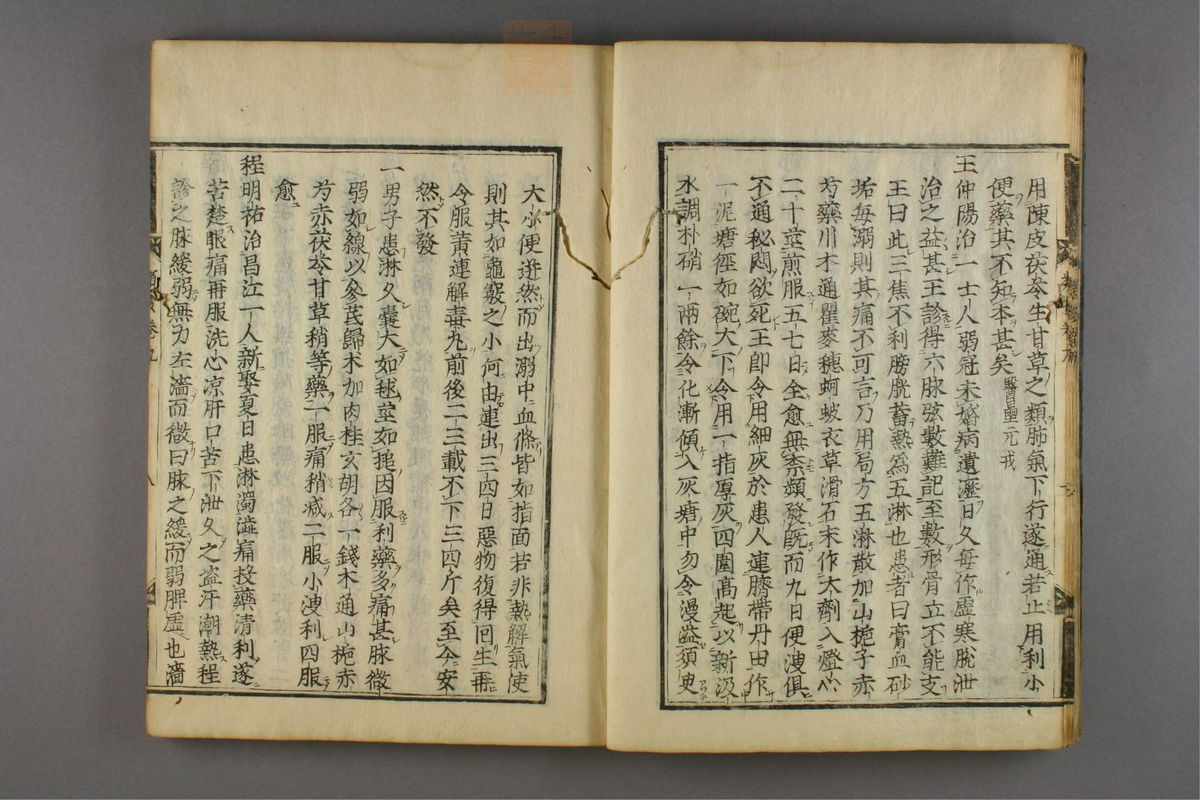 用陳皮茯苓生甘草之類肺氣下行遂通若止用利小
便藥其不知本甚矣 醫壘元戎
王仲陽治一士人弱冠未婚病遺瀝日久每作虛寒脫泄
治之益甚王診得六脉弦數難記至數形骨立不能支
王曰此三焦不利膀胱蓄熱爲五淋也患者曰膏血砂
垢每溺則其痛不可言乃用局方五淋散加山梔子赤
芍藥川木通瞿麥穗蚵蚾衣草滑石末作大劑入燈心
二十莖煎服五七日全愈無柰頻發既而九日便溲俱
不通秘悶欲死王卽令用細灰於患人連臍帶丹田作
一泥塘徑如碗大下令用一指厚灰四圍高起以新汲
水調朴硝一兩餘令化漸傾入灰塘中勿令漫溢須臾
大小便迸然而出溺中血條皆如指面若非熱解氣使
則其如龜竅之小何由連出三四日惡物復得回生再
令服黃連解毒丸前後二三載不下三四斤矣至今安
然不發
一男子患淋久囊大如毬莖如搥因服利藥多痛甚脉微
弱如線以參芪歸术加肉桂玄胡各一錢木通山梔赤
芍赤茯苓甘草稍等藥一服痛稍减二服小溲利四服
愈
程明祐治昌江一人新娶夏日患淋濁澁痛投藥清利遂
苦楚眼痛再服洗心凉肝口苦下泄久之盗汗潮熱程
診之脉緩弱無力左濇而微曰脉之緩而弱脾虛也濇